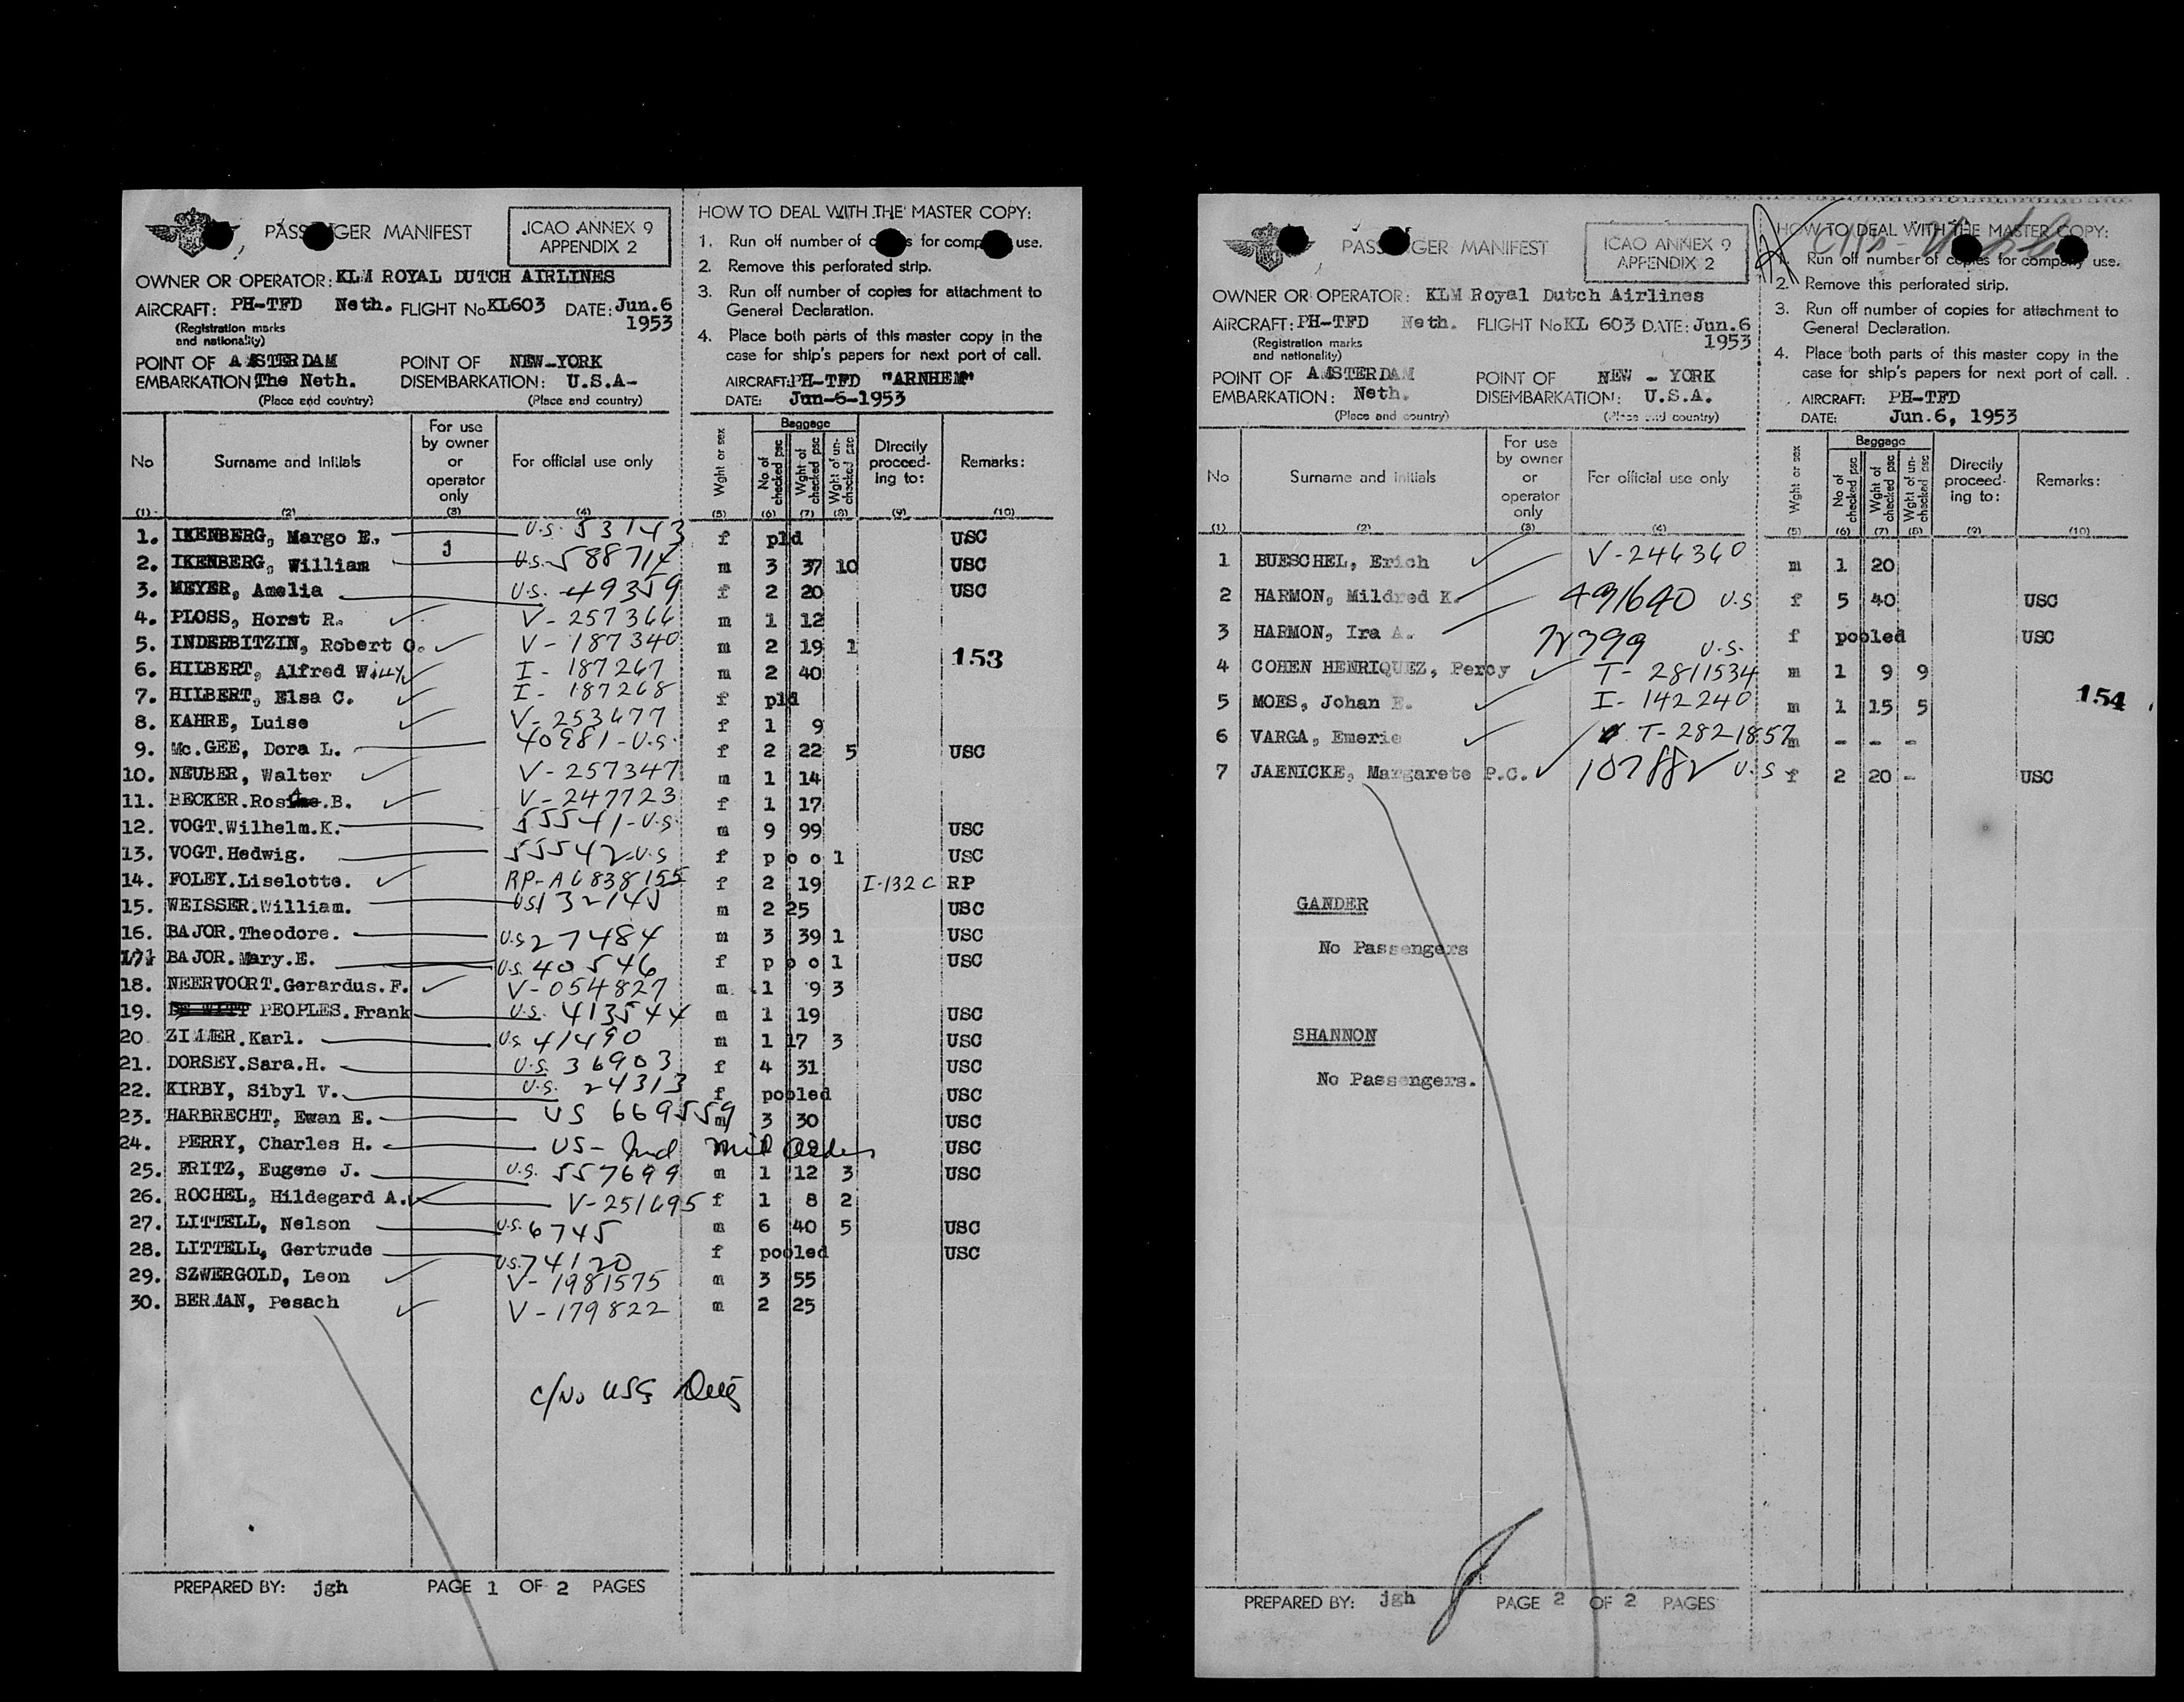 PASSENGER MANIFEST
ICAO ANNEX 9
APPENDIX 2
OWNER OR OPERATOR: KLM ROYAL DUTCH AIRLINES
AIRCRAFT: PH-TFD Neth. FLIGHT No KL603 DATE: Jun.6
1953
(Registration marks
and nationality)
POINT OF AMSTERDAM POINT OF NEW-YORK
EMBARKATION The Neth. DISEMBARKATION: U.S.A-
(Place and country) (Place and country)
HOW TO DEAL WITH THE MASTER COPY:
1. Run off number of copies for company use.
2. Remove this perforated strip.
3. Run off number of copies for attachment to
General Declaration.
4. Place both parts of this master copy in the
case for ship's papers for next port of call.
AIRCRAFT: PH-TFD "ARNHEM"
DATE: Jun-6-1953
No Surname and initials For use by owner or operator only For official use only Wght or sex Baggage No of checked psc Wght of checked psc Wght of un-checked psc Directly proceed-ing to: Remarks:
(1) (2) (3) (4) (5) (6) (7) (8) (9) (10)
1. IKENBERG, Margo E. U.S. 53143 f pld USC
2. IKENBERG, William U.S. 588714 m 3 37 10 USC
3. MEYER, Amelia U.S. 49359 f 2 20 USC
4. PLOSS, Horst R. V-257366 m 1 12
5. INDERBITZIN, Robert O. V-187340 m 2 19 1
153
6. HILBERT, Alfred Willy I-187267 m 2 40
7. HILBERT, Elsa C. I-187268 f pld
8. KAHRE, Luise V-253477 f 1 9
9. Mc.GEE, Dora L. 40981-U.S. f 2 22 5 USC
10. NEUBER, Walter V-257347 m 1 14
11. BECKER.Rosine.B. V-247723 f 1 17
12. VOGT.Wilhelm.K. 55541-U.S. m 9 99 USC
13. VOGT.Hedwig. 55542-U.S f p o o l USC
14. FOLEY.Liselotte. RP-A6838155 f 2 19 I-132 C RP
15. WEISSER.William. US132145 m 2 25 USC
16. BAJOR.Theodore. U.S 27484 m 3 39 1 USC
17. BAJOR.Mary.E. U.S. 40546 f p o o l USC
18. NEERVOORT.Gerardus.F. V-054827 m 1 9 3
19. DE WITT PEOPLES.Frank U.S. 413544 m 1 19 USC
20 ZIMMER.Karl. U.S 41490 m 1 17 3 USC
21. DORSEY.Sara.H. U.S. 36903 f 4 31 USC
22. KIRBY, Sibyl V. U.S. 24313 f pooled USC
23. HARBRECHT, Ewan E. US 669559 m 3 30 USC
24. PERRY, Charles H. US- Mil Orders USC
25. FRITZ, Eugene J. U.S. 557699 m 1 12 3 USC
26. ROCHEL, Hildegard A. V-251695 f 1 8 2
27. LITTELL, Nelson U.S. 6745 m 6 40 5 USC
28. LITTELL, Gertrude U.S. 74120 f pooled USC
29. SZWERGOLD, Leon V-1981575 m 3 55
30. BERMAN, Pesach V-179822 m 2 25
PREPARED BY: jgh PAGE 1 OF 2 PAGES
PASSENGER MANIFEST
ICAO ANNEX 9
APPENDIX 2
OWNER OR OPERATOR: KLM Royal Dutch Airlines
AIRCRAFT: PH-TFD Neth. FLIGHT No KL 603 DATE: Jun.6
1953
(Registration marks
and nationality)
POINT OF AMSTERDAM POINT OF NEW - YORK
EMBARKATION: Neth. DISEMBARKATION: U.S.A.
(Place and country) (Place and country)
HOW TO DEAL WITH THE MASTER COPY:
1. Run off number of copies for company use.
2. Remove this perforated strip.
3. Run off number of copies for attachment to
General Declaration.
4. Place both parts of this master copy in the
case for ship's papers for next port of call.
AIRCRAFT: PH-TFD
DATE: Jun.6, 1953
No Surname and initials For use by owner or operator only For official use only Wght or sex Baggage No of checked psc Wght of checked psc Wght of un-checked psc Directly proceed-ing to: Remarks:
(1) (2) (3) (4) (5) (6) (7) (8) (9) (10)
1 BUESCHEL, Erich V-246360 m 1 20
2 HARMON, Mildred K. 491640 U.S f 5 40 USC
3 HARMON, Ira A. 72399 U.S. f pooled USC
4 COHEN HENRIQUEZ, Percy T-2811534 m 1 9 9
154
5 MOES, Johan E. I-142240 m 1 15 5
6 VARGA, Emerie T-2821857 m - - -
7 JAENICKE, Margarete P.C. 107882 U.S f 2 20 - USC
GANDER
No Passengers
SHANNON
No Passengers.
PREPARED BY: jgh PAGE 2 OF 2 PAGES